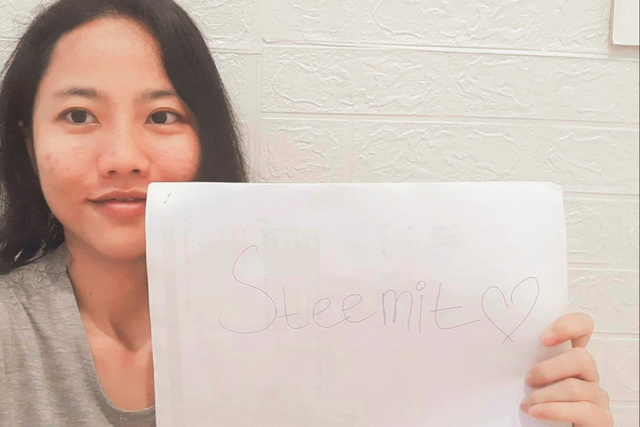 Steemit♡